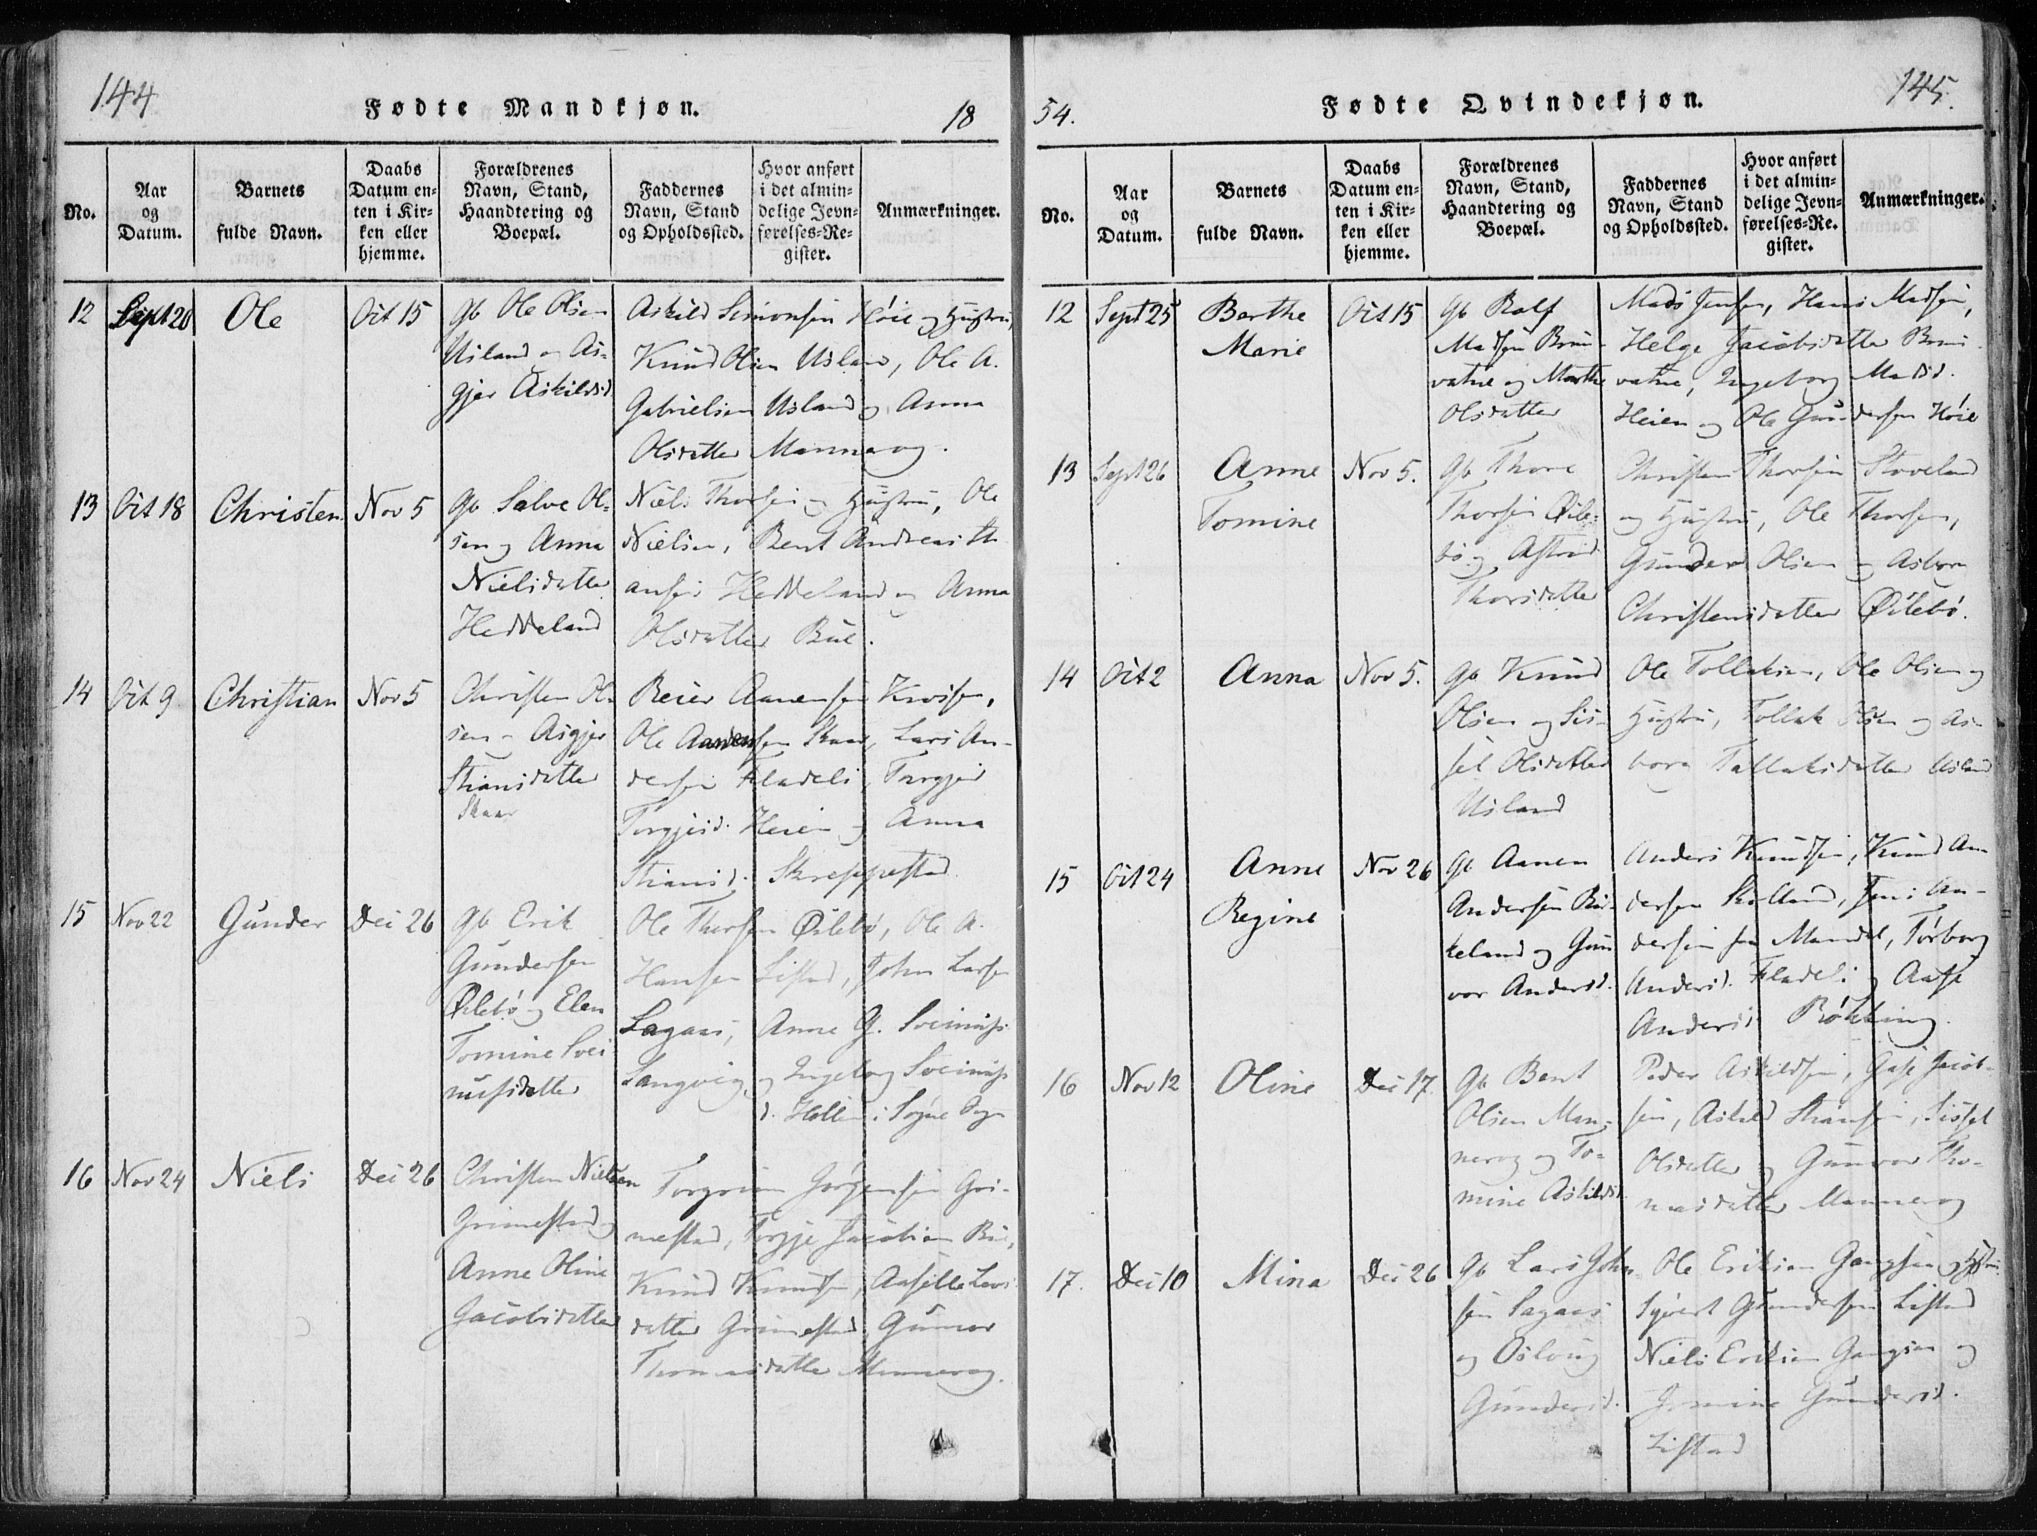 144
Fødte Mandkjøn.
18
No.
Aar og Datum.
Barnets fulde Navn.
Daabs Datum enten i Kirken eller hjemme.
Forældrenes Navn, Stand, Haandtering og Boepæl.
Faddernes Navn, Stand og Opholdssted.
Hvor anført i det almindelige Jevnførelses-Register.
Anmærkninger.
12 Sept 20 Ole Oct 15
Gb Ole Olsen
Usland og As-
gjer Askildsd
Askild Simonsen Höie og Hustru,
Knud Olsen Usland, Ole A.
Gabrielsen Usland og Anna
Olsdatter Mannerog.
13 Oct 18 Christen Nov 5
Gb Salve Ol-
sen og Anna
Nielsdatter
Heddeland
Niels Thorsen og Hustru, Ole
Nielsen, Bent Andreas Th
ansen Heddeland og Anna
Olsdatter Bue.
14 Oct 9 Christian Nov 5
Christen Ol-
sen - Asgjer
Stiansdatter
Skaar
Reier Aanensen
Ole Aanensen Skaar, Lars An-
dersen Fladeli, Torgjer
Torgjersd. Heien og Anna
Stiansd. Skreppestad.
15 Nov 22 Gunder Dec 26
Gb Erik
Gundersen
Öilebö og Elen
Tomine Svei
nusdatter
Ole Thorsen Öilebö, Ole A.
Hansen Listad, John Larsen
Lagaas, Anne G. Sveinus
Langvig og Ingeborg Sveinus
d. Hollen i Sogne Sogn
16 Nov 24 Niels Dec 26
Christen Nielsen
Grimestad og
Anne Oline
Jacobsdatter
Torgrim Jörgensen Gri-
mestad, Torgje Jacobsen Bue,
Knud Knudsen, Aasille Lars
datter Grimestad, Gunvor
Thomasdatter Mannerog.
54.
Fødte Qvindekjøn.
145.
No.
Aar og Datum.
Barnets fulde Navn.
Daabs Datum enten i Kirken eller hjemme.
Forældrenes Navn, Stand, Haandtering og Boepæl.
Faddernes Navn, Stand og Opholdssted.
Hvor anført i det almindelige Jevnførelses-Register.
Anmærkninger.
12 Sept 25 Berthe Marie Oct 15
Gb Rolf
Madsen Brun-
vatne og Marthe
Olsdatter
Mads Jensen, Hans Madsen,
Helge Jacobsdatter Brun
vatne, Ingeborg Madsd.
Heien og Ole Gundersen Höie
13 Sept 26 Anne Tomine Nov 5.
Gb Thore
Thorsen Öile-
bö og Astrid
Thorsdatter
Christen Thorsen Stoveland
og Hustru, Ole Thorsen,
Gunder Olsen og Asbor
Christensdatter Öilebö.
14 Oct 2 Anna Nov 5.
Gb Knud
Olsen og Sis-
sel Olsdatter
Usland
Ole Tollaksen, Ole Olsen og
Hustru, Tollak Olsen og As-
bora Tallaksdatter Usland
15 Oct 24 Anne Regine Nov 26
Gb Aanen
Andersen Bir-
keland og Gun
vor Andersd.
Anders Knudsen, Knud An-
dersen Skolland, Jens An-
dersen fra Mandal, Torborg
Andersd. Fladeli og Aase
Andersd. Rökking.
16 Nov 12 Oline Dec 17.
Gb Bent
Olsen Man-
nerog og To-
mine Askildsd.
Peder Askildsen, Jacob-
sen, Askild Stiansen, Sissel
Olsdatter og Gunvor Tho-
masdatter Mannerog
17. Dec 10 Mina Dec 26
Gb Lars John-
sen Lagaas
og Oslaug
Gundersd.
Ole Eriksen og Hustru
Syvert Gundersen Listad
Niels Eriksen og
Gundersd.
Listad